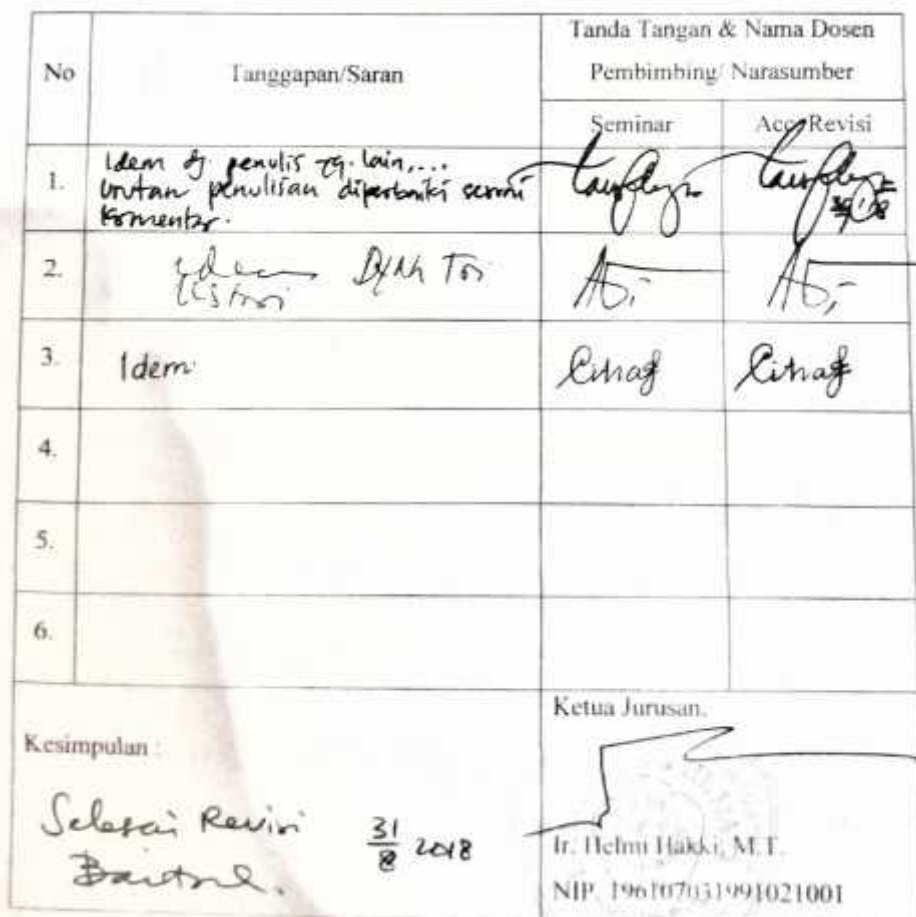 No
Tanggapan/Saran
Tanda Tangan & Nama Dosen
Pembimbing/ Narasumber
Seminar
Acc. Revisi
1.
Idem dg. penulis yg. lain,...
Urutan penulisan diperbaiki sesuai
Komentar.
2.
3.
Idem
4.
5.
6.
Kesimpulan :
Selesai Revisi
31/8 2018
Ketua Jurusan,
Ir. Helmi Hakki, M.T.
NIP. 196107031991021001